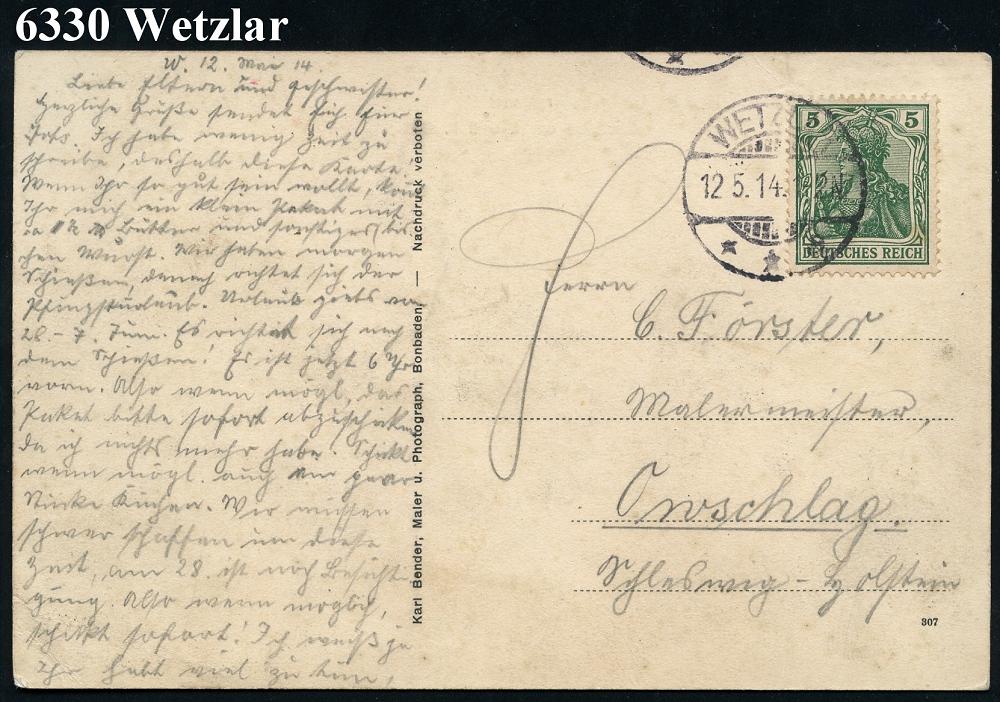 6330 Wetzlar
W. 12. Mai 14.
Liebe Eltern und Geschwister!
Herzliche Grüße sendet Euch Euer
Ich habe wenig Zeit zu
schreibe, deshalb diese Karte.
Wenn Ihr so gut sein wollt,
Ihr mich ein klein Paket mit
Butter und sonstiges bis
chen Wurst. Wir haben morgen
Schießen, danach richtet sich der
Pfingsturlaub. Urlaub giebts von
28. - 7. Juni. Es richtet sich nach
dem Schießen! Es ist jetzt 6 Uhr
vorm. Also wenn mögl. das
Paket bitte sofort abzuschicken
da ich nichts mehr habe. Schickt
wenn mögl. auch ein paar
Stücke Kuchen. Wir müssen
schwer schaffen um diese
Zeit, am 28. ist noch Besichti
gung. Also wenn möglich,
schickt sofort! Ich weiß ja
Ihr habt viel zu tun,
Karl Bender, Maler u. Photograph, Bonbaden. — Nachdruck verboten
WETZ
12.5.14. 1-2N
5 5
DEUTSCHES REICH
Herrn
C. Förster,
Malermeister,
Owschlag.
Schleswig-Holstein
307